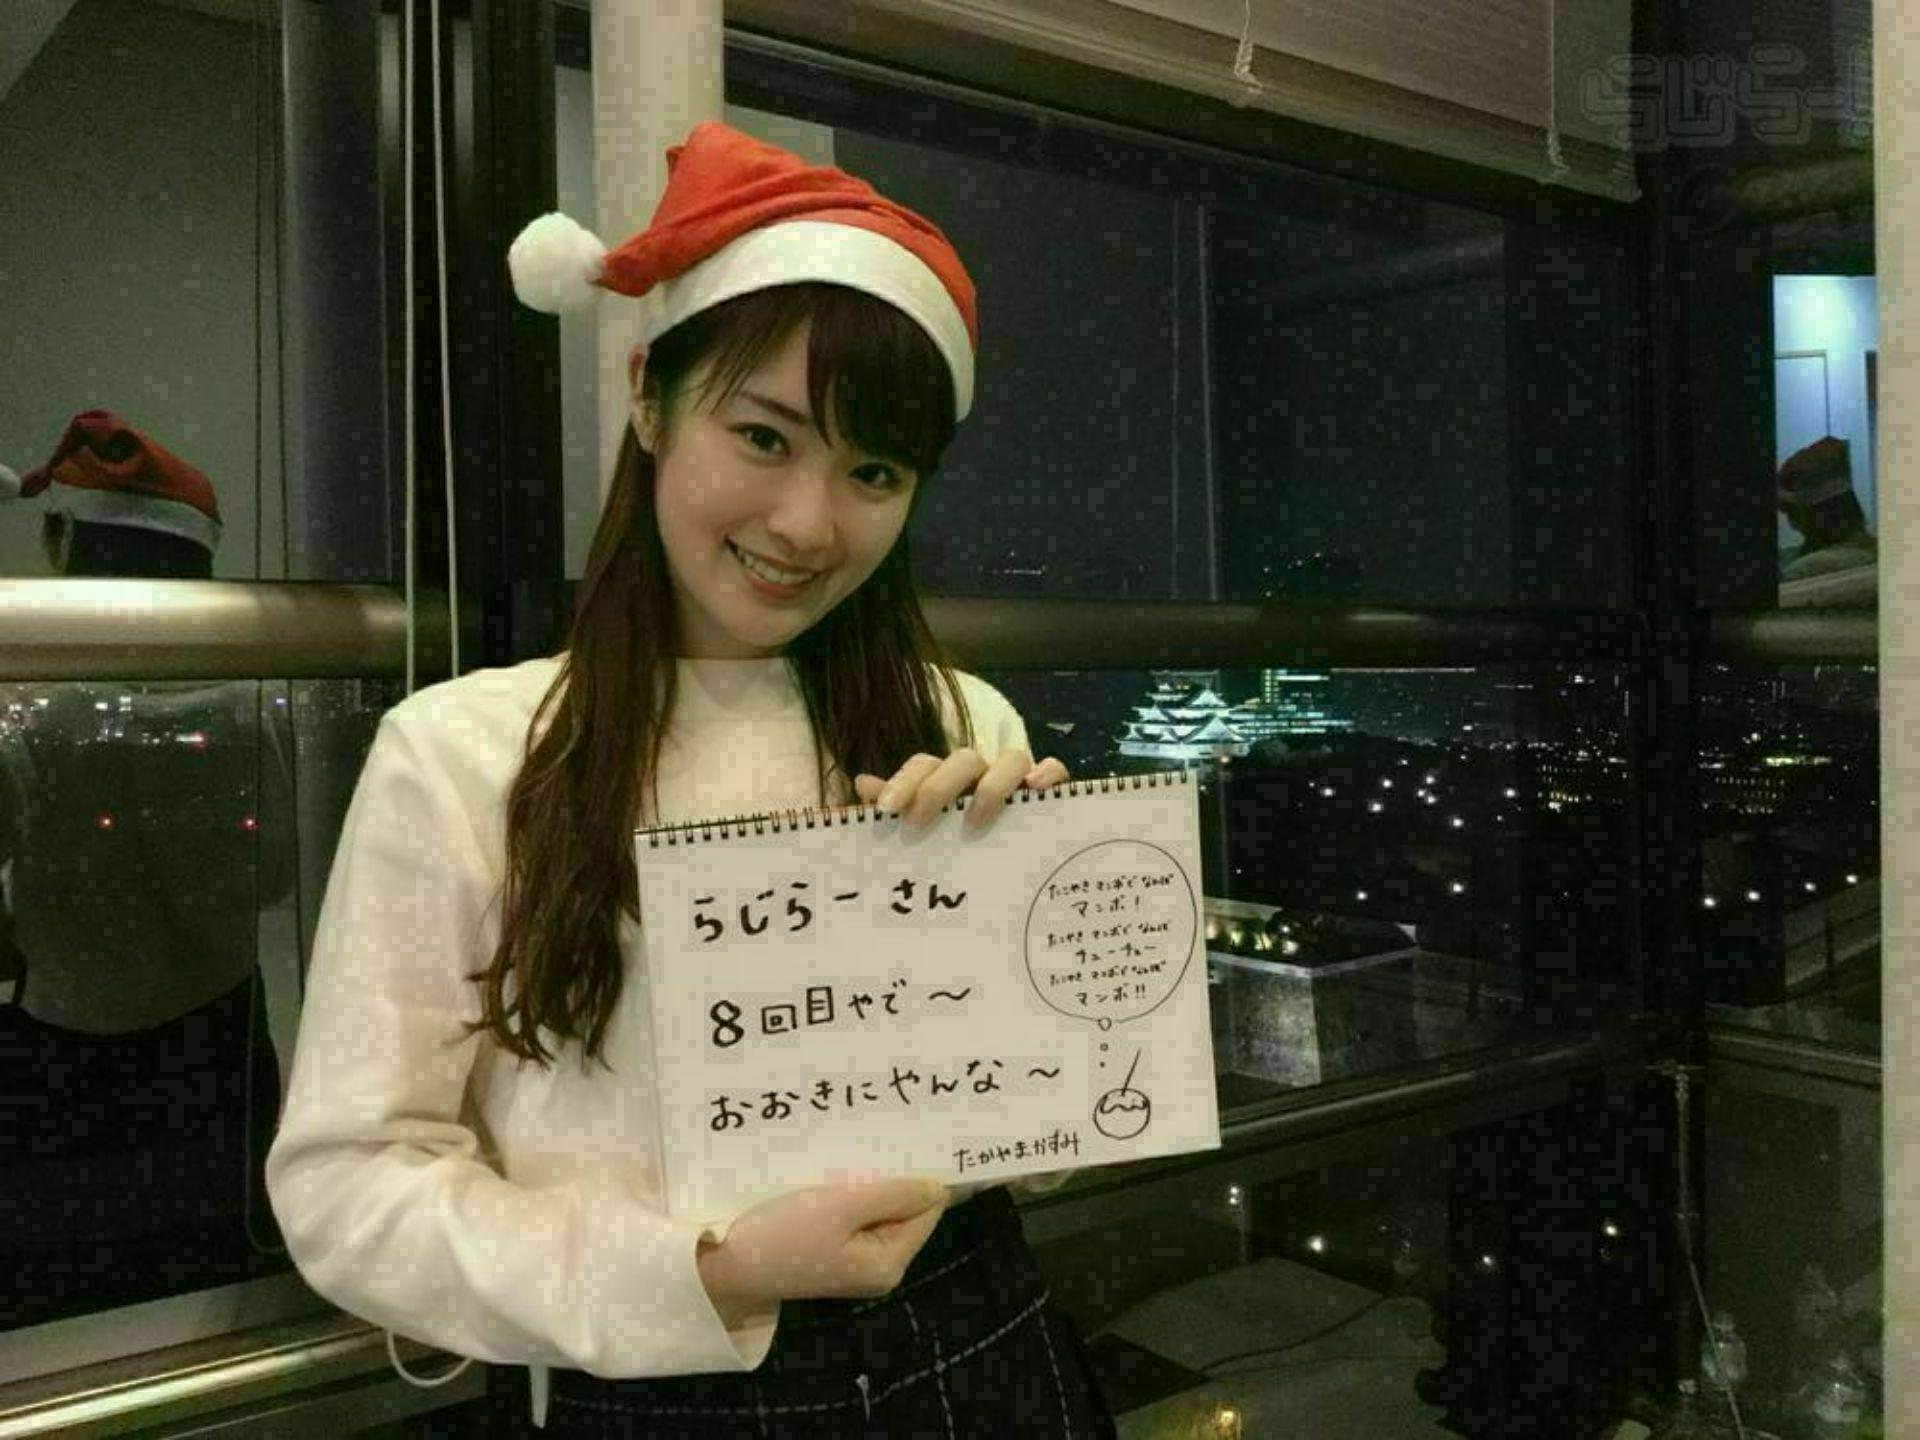 らじらー!
らじらー さん
8回目やで〜
おおきにやんな〜
たかやまかずみ
たこやきマンボでなんぼ
マンボ!
たこやきマンボでなんぼ
チューチュー
たこやきマンボでなんぼ
マンボ!!